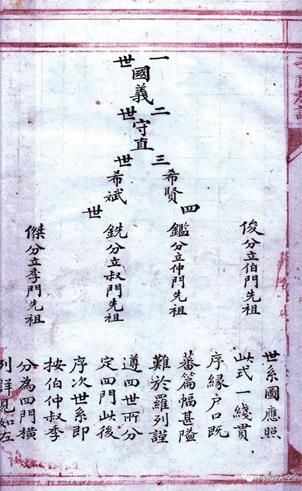 一世
國義
二世
守直
三世
希賢
希斌
四世
俊分立伯門先祖
鑑分立仲門先祖
銑分立叔門先祖
傑分立季門先祖
世系圖應照
此式一綫貫
序緣户口既
蕃篇幅甚隘
難於羅列謹
遵四世所分
定四門此後
序次世系即
按伯仲叔季
分為四門横
列詳見如左